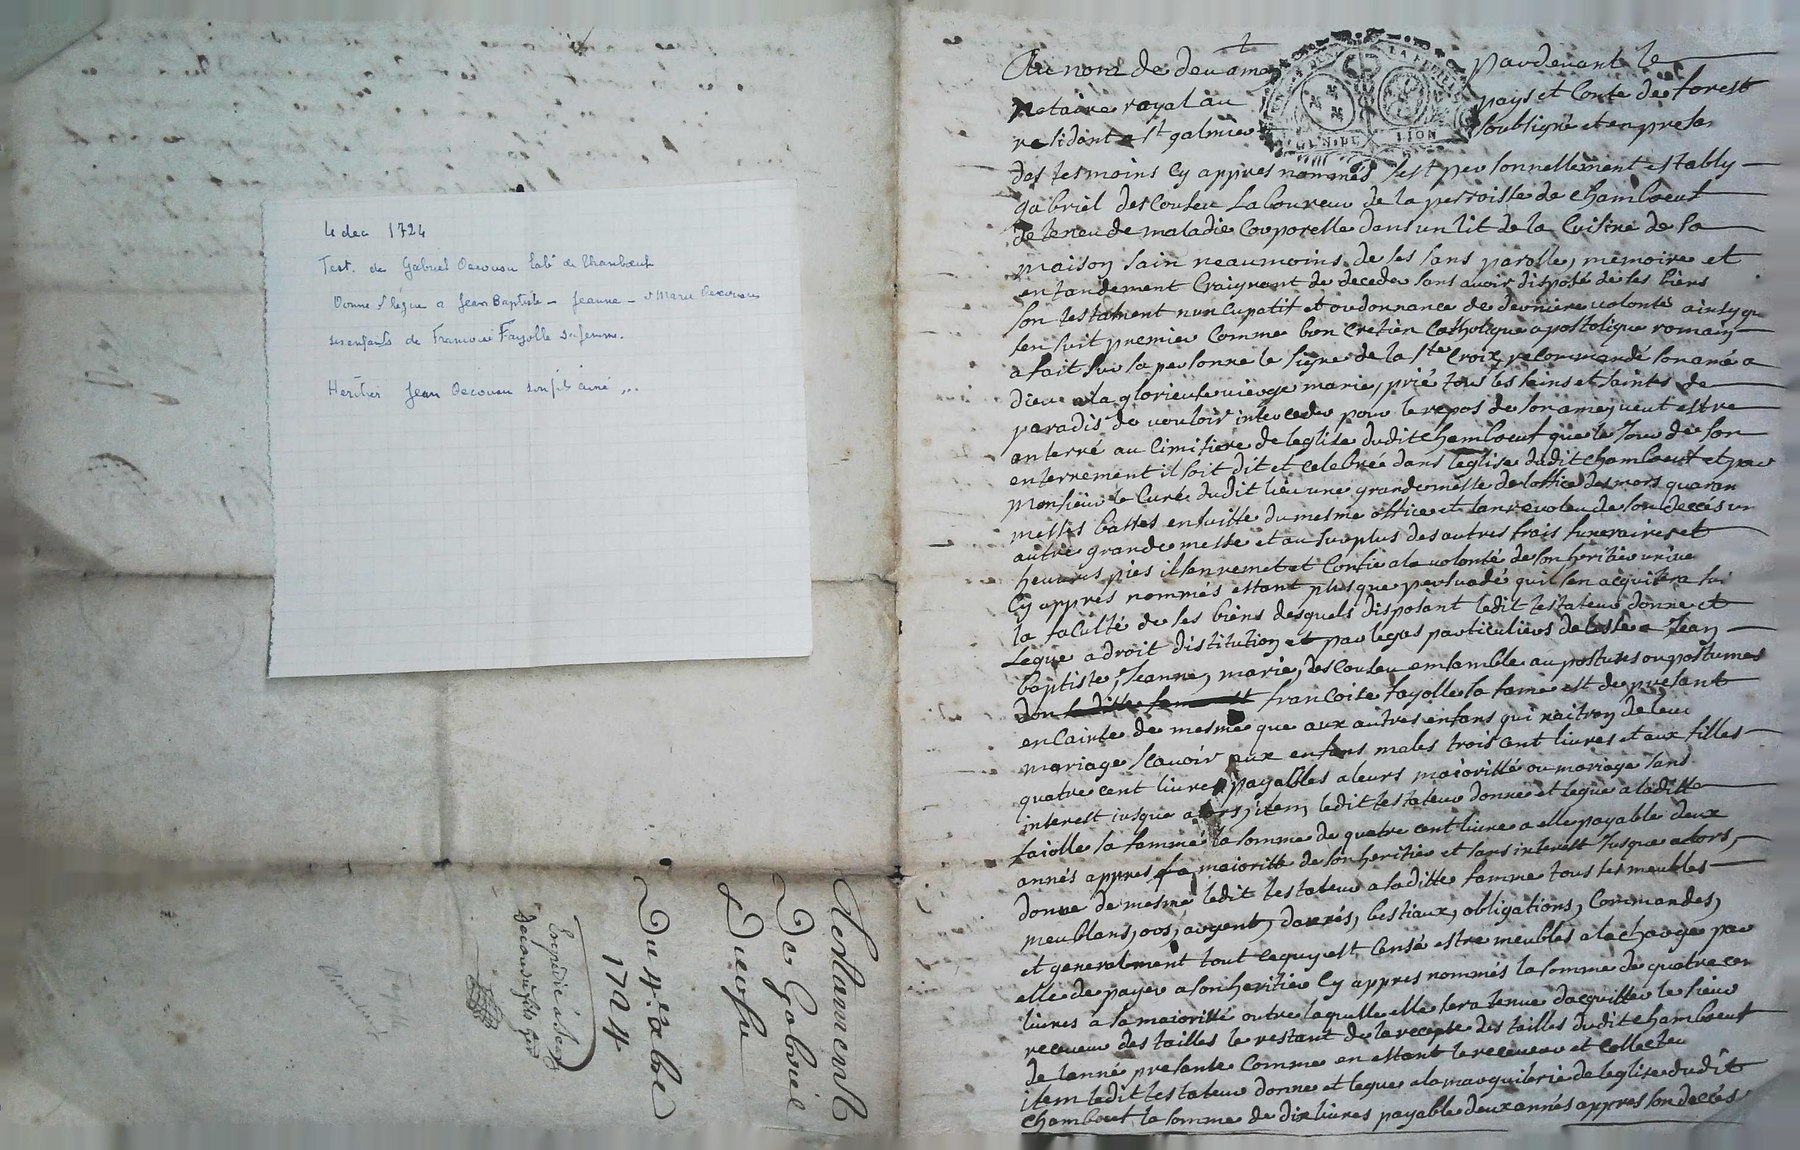 4 dec 1724
Test. de Gabriel Decousu lab^r de Chambœuf
Donne & lègue a Jean Baptiste - Jeanne - & Marie Decousu
ses enfants de Francoise Fayolle sa femme.
Héritier Jean Decousu son fils ainé ...
Testament
De Gabriel
Decousu
Du 4e xbre
1724
Expedié à Jean
Au nom de dieu amen pardevant le
notaire royal au pays et Conté de forest
residant a st galmier soubsigné et en presen
des tesmoins Cy appres nommés s'est personnellement estably
gabriel descousu Laboureur de la perroisse de Chambœuf
detenu de maladie Corporelle dans un lit de la Cuisine de sa
maison sain neaumoins de ses sans parolle, memoire et
entandement Craignant de deceder sans avoir disposé de ses biens
son testament nuncupatif et ordonnance de derniere volonté ainsy qu
sen suit premier Comme bon Cretien Catholique apostolique romain
a fait sur sa personne le signe de la ste Croix recommandé son ame a
dieu a la glorieuse vierge marie, prié tous les sains et saintes de
paradis de vouloir interceder pour le repos de son ame, veut estre
anterré au Cimitiere de leglise dudit Chambœuf que le Jour de son
enterrement il soit dit et celebrée dans leglise dudit Chambœuf et par
Monsieur le Curé dudit lieu une grande messe de loffice des mors quaran
messes basses ensuitte du mesme office et lan revoleu de son deccés un
autre grande messe et au surplus des autres frais funeraires et
heuvres pies il sen remet et Confie a la volonté de son heritier unive
Cy appres nommés estant plus que persuadé quil sen acquitera sui
la faculté de ses biens desquels disposant ledit testateur donne et
Legue a droit distitution et par legas particuliers de laisse a Jean
baptiste, Jeanne, marie, descousu ensamble au postumes ou postumes
dont francoise fayolle sa fame est de presant
enCainte de mesme que aux autres enfans qui naitron de leur
mariage scavoir aux enfans males trois cent livres et aux filles
quatre cent livres payables a leurs maioritté ou mariage sans
interest iusque alors, item ledit testateur donne et legue a laditte
faiolle sa famme la somme de quatre cent livre a elle payable deux
annés appres la maioritte de son heritier et sans interest Jusque alors,
donne de mesme ledit testateur a laditte famme tous les meubles
meublans, oos, argent, danrés, bestiaux, obligations, Commandes,
et generalment tout Ce quy est Censé estre meubles a la charge par
elle de payer a son heritier Cy appres nommés la somme de quatre cen
livres a sa maioritté outre laquelle elle sera tenue dacquitter le sieur
receveur des tailles le restant de la recepte des tailles dudit Chambœuf
de lanné presante Comme en estant le receveur et Collecteur
item ledit testateur donne et legue a la marguilerie de leglise dudit
Chambœuf la somme de dix livres payable deux annés appres son deccés